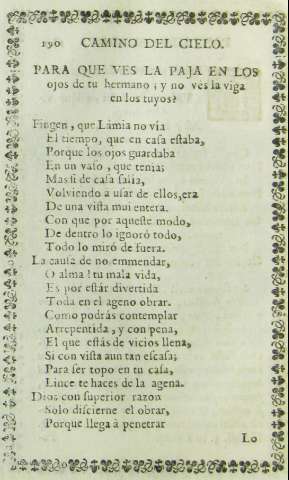 190 CAMINO DEL CIELO.
PARA QUE VES LA PAJA EN LOS
ojos de tu hermano; y no ves la viga
en los tuyos?
Fingen, que Lámia no vía
El tiempo, que en casa estaba,
Porque los ojos guardaba
En un vaso, que tenia;
Mas si de casa salia,
Volviendo a usar de ellos, era
De una vista mui entera.
Con que por aqueste modo,
De dentro lo ignoró todo,
Todo lo miró de fuera.
La causa de no emmendar,
O alma! tu mala vida,
Es por estár divertida
Toda en el ageno obrar.
Como podrás contemplar
Arrepentida, y con pena,
El que estás de vicios llena,
Si con vista aun tan escasa;
Para ser topo en tu casa,
Lince te haces de la agena.
Dios con superior razon
Solo discierne el obrar,
Porque llega à penetrar
Lo